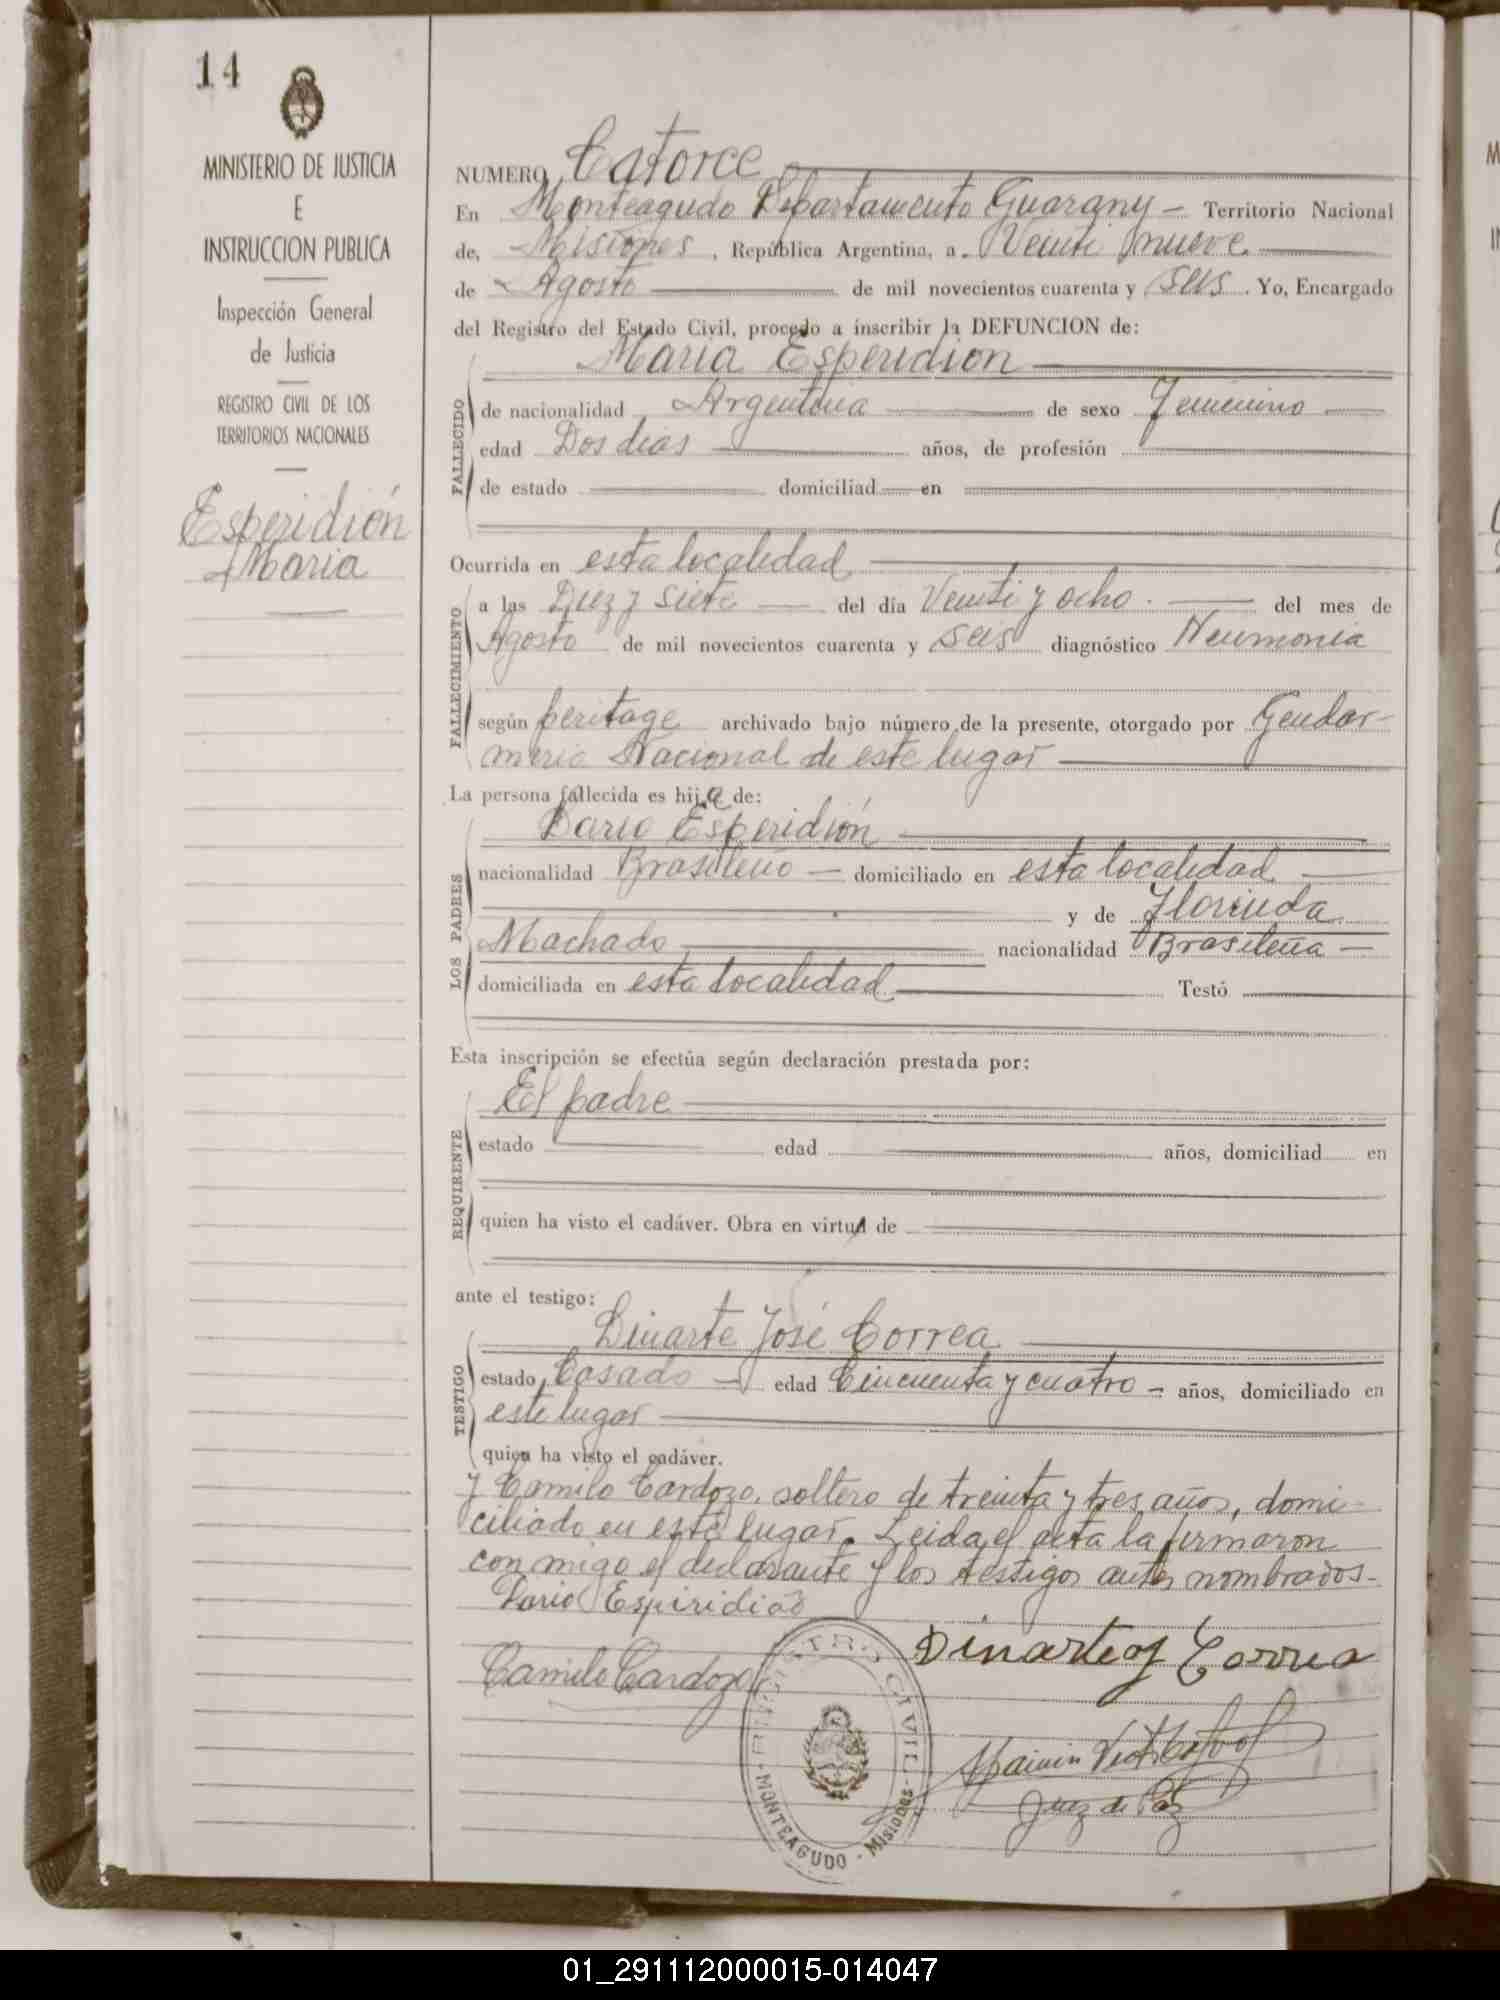 14
MINISTERIO DE JUSTICIA
E
INSTRUCCION PUBLICA
Inspección General
de Justicia
REGISTRO CIVIL DE LOS
TERRITORIOS NACIONALES
Esperidión
Maria
NUMERO Catorce
En Monteagudo Departamento Guarany - Territorio Nacional
de, Misiones, República Argentina, a. Veinti nueve
de Agosto de mil novecientos cuarenta y seis. Yo, Encargado
del Registro del Estado Civil, procedo a inscribir la DEFUNCION de:
Maria Esperidion
FALLECIDO
de nacionalidad Argentina de sexo Femenino
edad Dos dias años, de profesión
de estado domiciliad en
Ocurrida en esta localidad
FALLECIMIENTO
a las Diez y siete del día Veinti y ocho. del mes de
Agosto de mil novecientos cuarenta y seis diagnóstico Neumonia
según peritage archivado bajo número de la presente, otorgado por Gendar-
meria Nacional de este lugar
La persona fallecida es hija de:
LOS PADRES
Dario Esperidión
nacionalidad Brasileño - domiciliado en esta localidad
y de Florinda
Machado nacionalidad Brasileña -
domiciliada en esta localidad Testó
Esta inscripción se efectúa según declaración prestada por:
REQUIRENTE
El padre
estado edad años, domiciliad en
quien ha visto el cadáver. Obra en virtud de
ante el testigo:
TESTIGO
Dinarte José Correa
estado Casado - edad Cincuenta y cuatro - años, domiciliado en
este lugar
quien ha visto el cadáver.
y Camilo Cardozo, soltero de treinta y tres años, domi-
ciliado en este lugar. Leida el acta la firmaron
con migo el declarante y los testigos antes nombrados-
Dario Espiridião
Camilo Cardozo
Dinarte Correa
Juez de Paz
REGISTRO CIVIL
MONTEAGUDO - Misiones
01_291112000015-014047